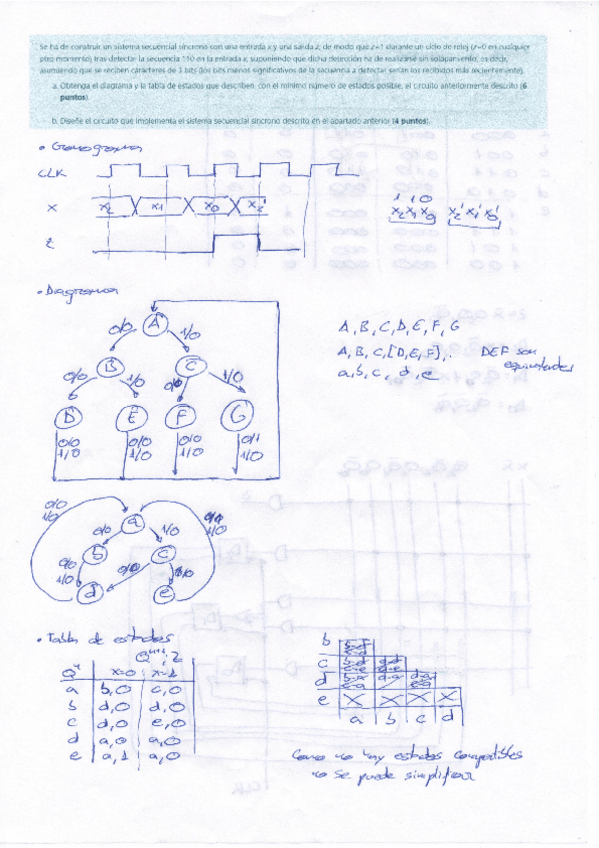 Se ha de construir un sistema secuencial síncrono con una entrada x y una salida z, de modo que z=1 durante un ciclo de reloj (z=0 en cualquier
otro momento) tras detectar la secuencia 110 en la entrada x, suponiendo que dicha detección ha de realizarse sin solapamiento, es decir,
asumiendo que se reciben caracteres de 3 bits (los bits menos significativos de la secuencia a detectar serían los recibidos más recientemente).
a. Obtenga el diagrama y la tabla de estados que describen, con el mínimo número de estados posible, el circuito anteriormente descrito (6
puntos).
b. Diseñe el circuito que implementa el sistema secuencial síncrono descrito en el apartado anterior (4 puntos).
• Cronograma
CLK
x x₂ x₁ x₀ x₂'
1 1 0
x₂x₁x₀ x₂'x₁'x₀'
z
• Diagrama
A
0/0 1/0
B C
0/0 1/0 0/0 1/0
D E F G
0/0 0/0 0/0 0/1
1/0 1/0 1/0 1/0
A, B, C, D, E, F, G
A, B, C, [D, E, F], . DEF son
equivalentes
a, b, c, d, e
0/0
1/0
a
0/0 1/0
b c
0/0
1/0
0/0 1/0
d e
1/0
• Tabla de estados
Qⁿ⁺¹; z
Qⁿ x=0 x=1
a b,0 c,0
b d,0 d,0
c d,0 e,0
d a,0 a,0
e a,1 a,0
b
c
d
e X X X X
a b c d
Como no hay estados compatibles
no se puede simplificar